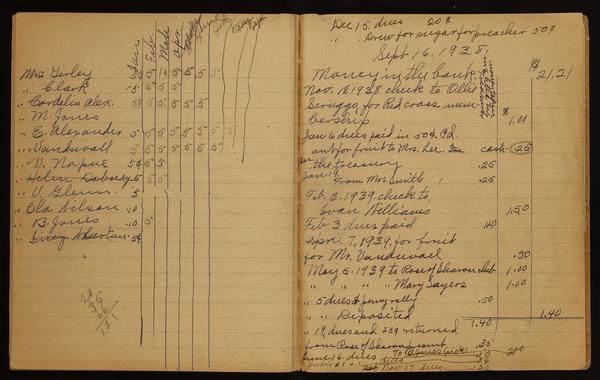 Jan. Feb. Mch. Apr.
Mrs Girley
" Clark 5 5 5 5
" Cordelia Alex. 5 5 5 5 5 5
" M. Jones
" E. Alexander 5 5 5 5 5 5
" Vanduvall 5 5 5 5 5
" V. Napue 5¢ 5 5
" Helen Dabney 5 5 5
" V. Glenn. 5
" Ola Wilson 10
" B. Jones 10 5
" Lucy Whartan 5¢
Dec 15. dues 20¢
" " Drew for sugar for preacher 50¢
Sept. 16, 1938.
Money in the bank $21.21
Nov. 18, 1938 check to Ollie
Scruggs for Red cross, mem-
bership 1.00
Jan 6 dues paid in 50¢. Pd.
out for fruit to Mrs. Lee. cash .25
in the treasury .25
Jan. 19
From Mrs. Smith .25
Feb. 3, 1939. check to,
Ivan Williams 1.50
Feb 3 dues paid 40
April 7, 1939, for fruit
for Mr. Vanduvall .50
May 5. 1939 to Rose of Sharon club 1.00
" " " " Mary Sayers 1.00
" 5 dues & penny rally .50
" " Deposited 1.40 1.40
" 19, dues and 25¢ returned
from Rose of Sharon .35
June 16. dues
Nov 17 dues.